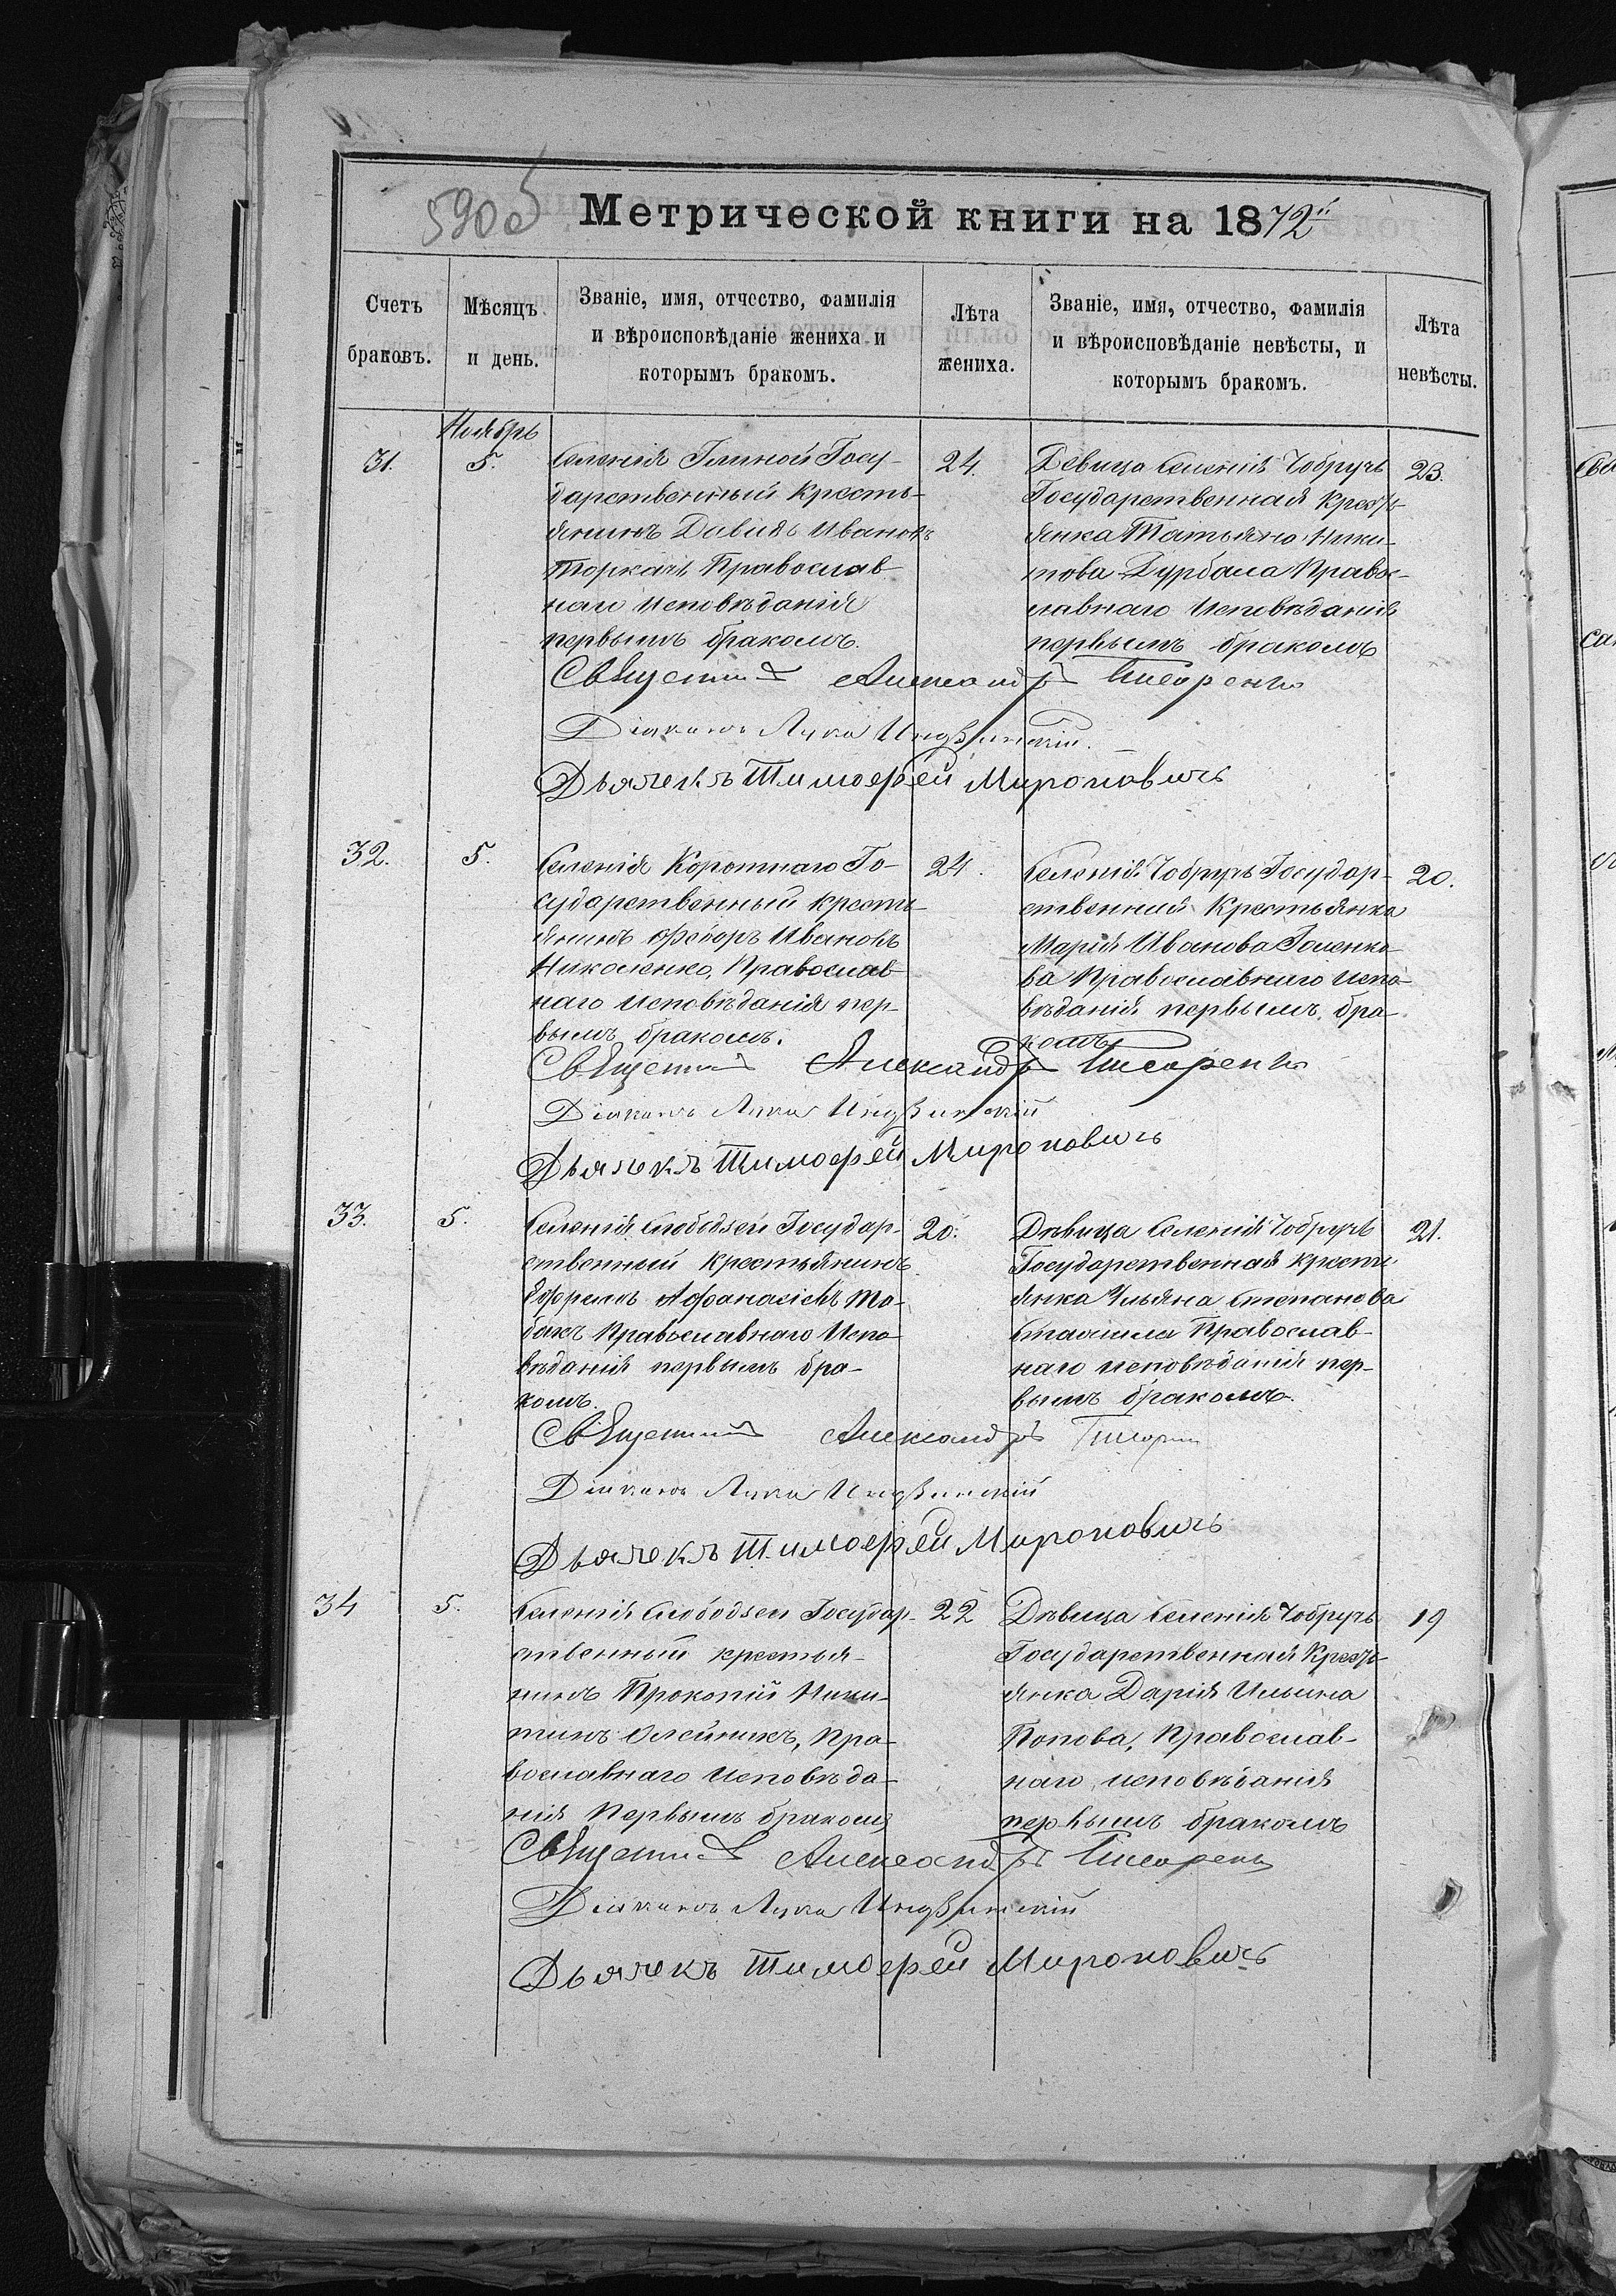 590 об
Метрической книги на 1872й
Счетъ браковъ.
Мѣсяцъ и день.
Званіе, имя, отчество, фамилія и вѣроисповѣданіе жениха и которымъ бракомъ.
Лѣта жениха.
Званіе, имя, отчество, фамилія и вѣроисповѣданіе невѣсты, и которымъ бракомъ.
Лѣта невѣсты.
Ноябрь
31.
5.
Селенія Глиной Госу-
дарственный кресть-
янинъ Давидъ Ивановъ
Православ-
наго исповѣданія
первымъ бракомъ.
24.
Девица Селенія Чобручъ
Государственная Кресть-
янка Татьяна Ники-
това Дурбала Правос-
лавнаго Исповѣданія
первымъ бракомъ
23.
Священникъ Александръ
Діаконъ Лука
Дьячекъ Тимофей Мироновичъ
32.
5.
Селенія Коротнаго Го-
сударственный кресть-
янинъ Феодоръ Ивановъ
Николенко, Православ-
наго исповѣданія пер-
вымъ бракомъ.
24.
Селенія Чобручъ Государ-
ственная Крестьянка
Марія Иванова Голенко-
ва Православнаго испо-
вѣданія первымъ бра-
комъ
20.
Священникъ Александръ
Діаконъ Лука
Дьячекъ Тимофей Мироновичъ
33.
5.
Селенія Слободзеи Государ-
ственный Крестьянинъ
Ефремъ Афанасіевъ Та-
бакъ Православнаго Испо-
вѣданія первымъ бра-
комъ.
20.
Дѣвица Селенія Чобручъ
Государственная кресть-
янка Ульяна Степанова
Православ-
наго исповѣданія пер-
вымъ бракомъ.
21.
Священникъ Александръ
Діаконъ Лука
Дьячекъ Тимофей Мироновичъ
34
5.
Селенія Слободзеи Государ-
ственный крестья-
нинъ Прокопій Ники-
тинъ Олейникъ, Пра-
вославнаго исповѣда-
нія Первымъ бракомъ
22
Дѣвица Селенія Чобручъ
Государственная Кресть-
янка Дарія Ильина
Попова, Православ-
наго исповѣданія
первымъ бракомъ
19
Священникъ Александръ
Діаконъ Лука
Дьячекъ Тимофей Мироновичъ